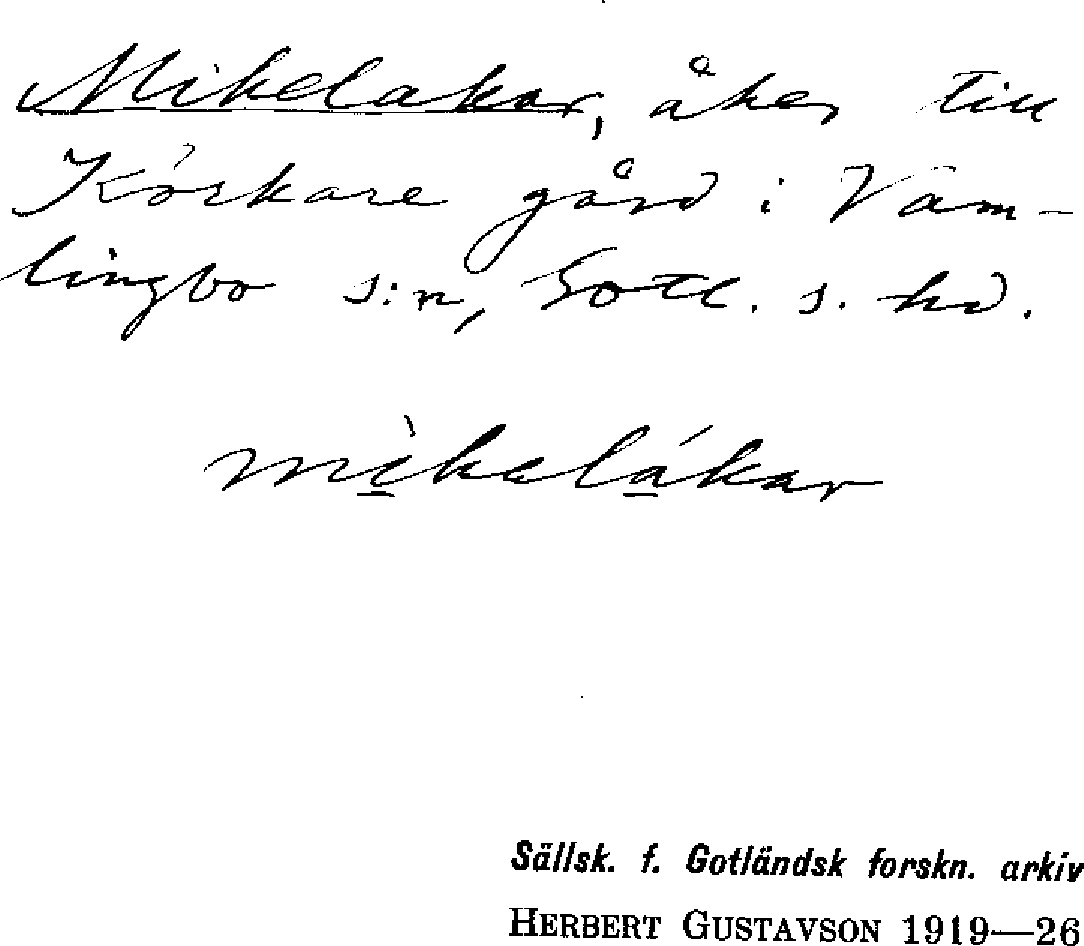 Mikelakar, åker till
Körkare gård i Vam-
lingbo s:n, Gotl. s. hd.
mikalakar
Sällsk. f. Gotländsk forskn. arkiv
HERBERT GUSTAVSON 1919—26